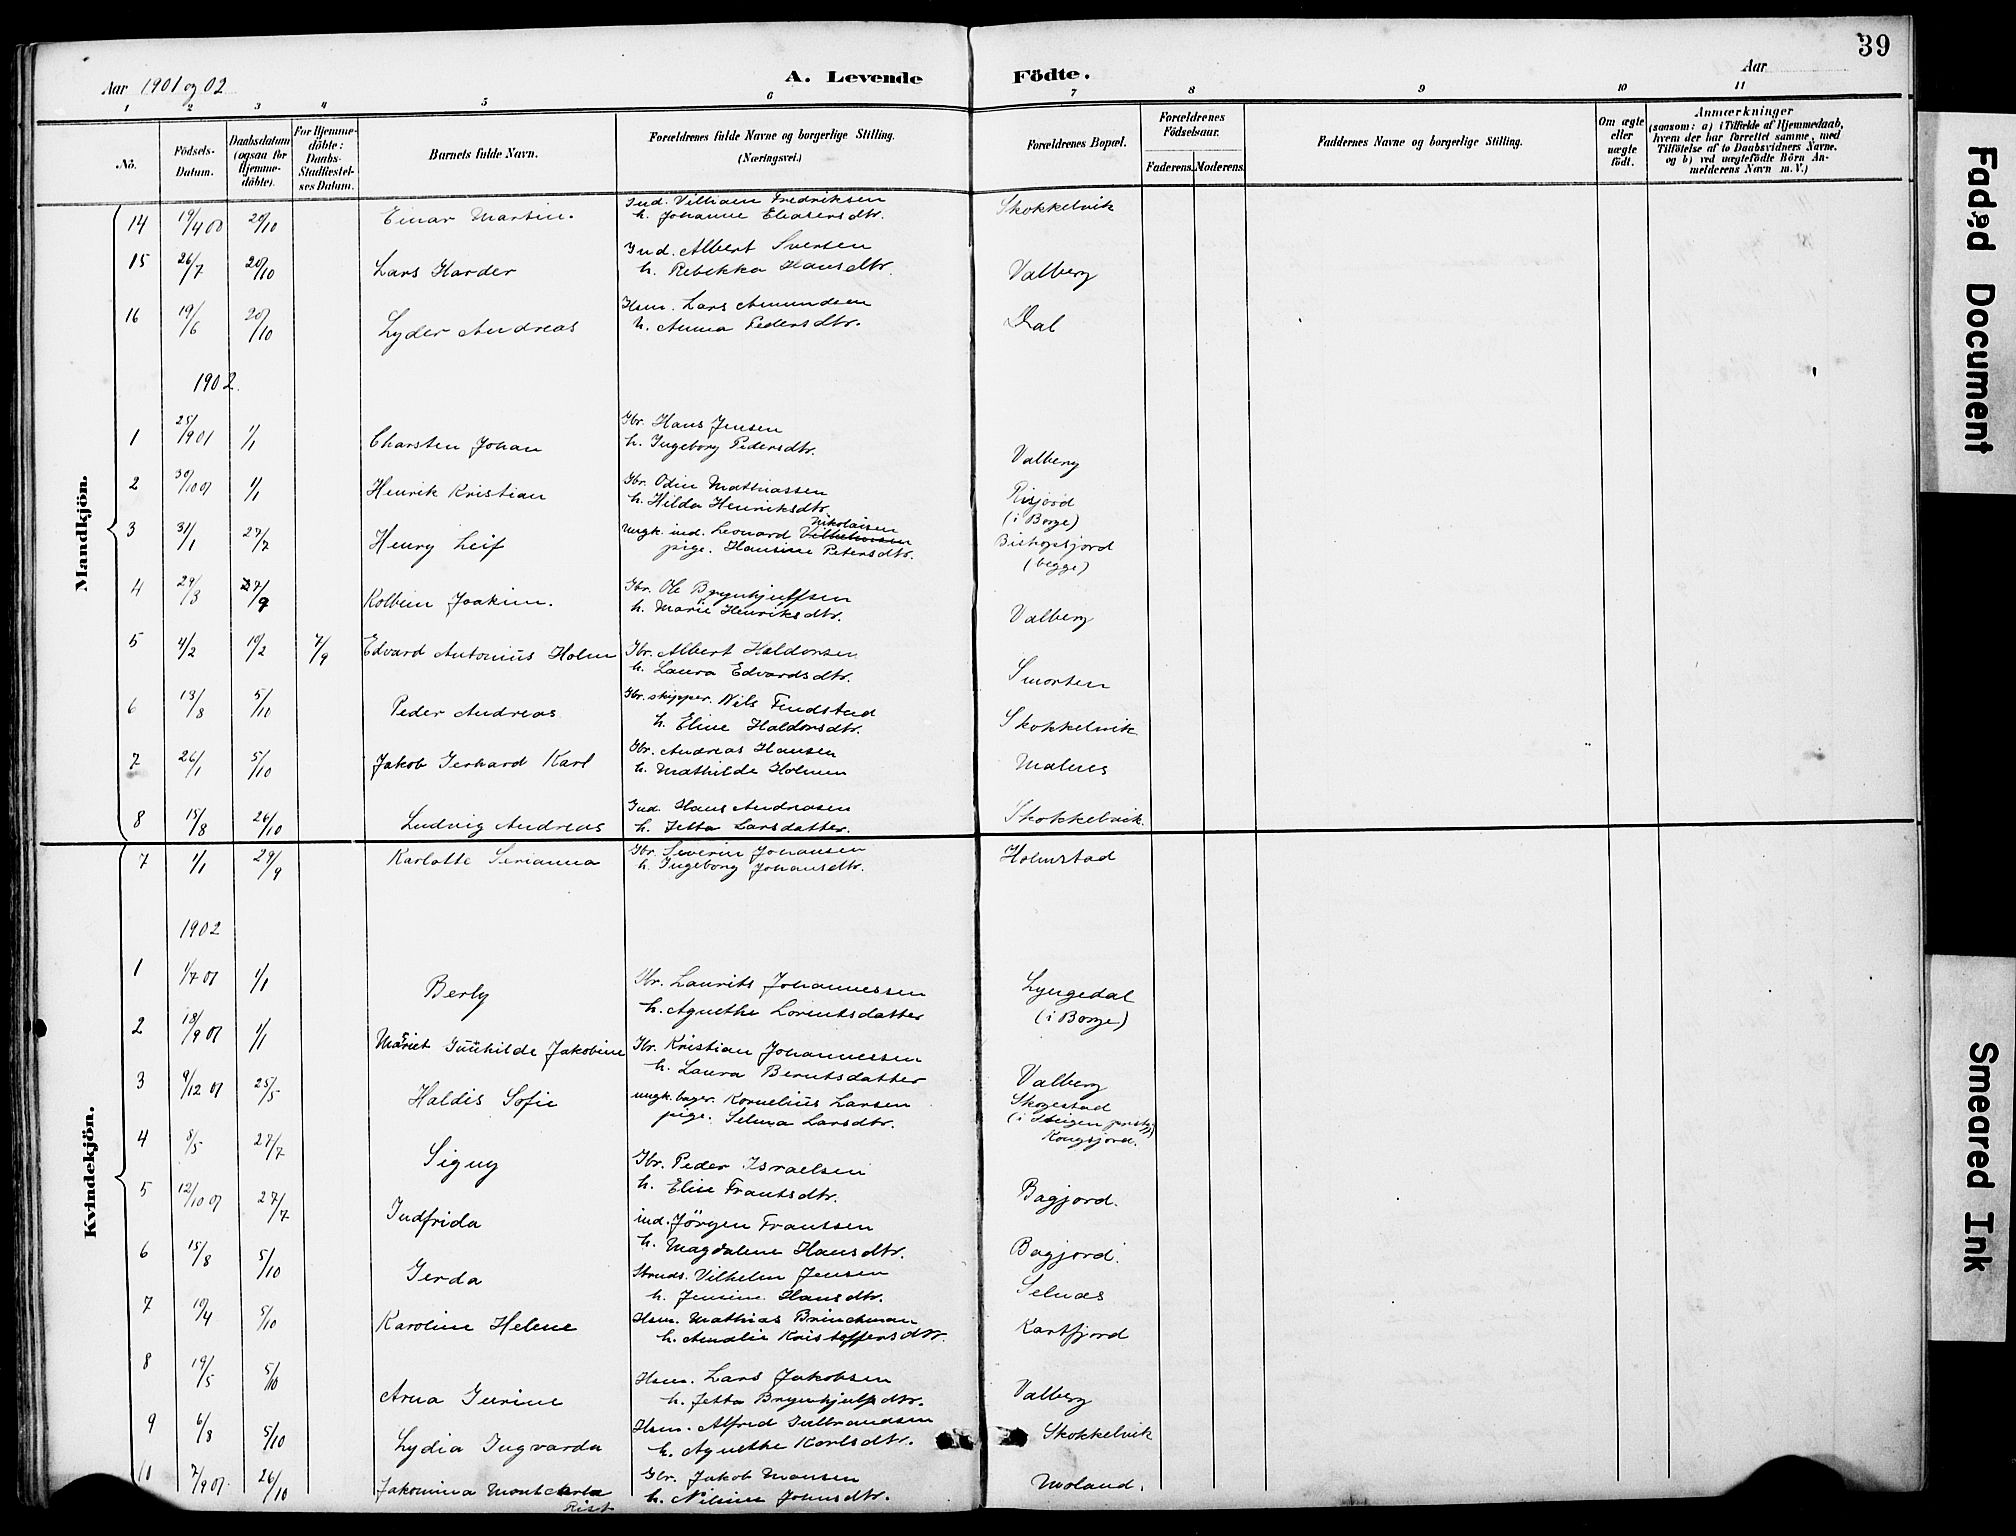 39
Aar 1901 og 02
A. Levende Födte.
Aar
1 2 3 4 5 6 7 8 9 10 11
No.
Födsels-Datum.
Daabsdatum (ogsaa for Hjemmedöbte).
For Hjemmedöbte: Daabs-Stadfæstelses Datum.
Barnets fulde Navn.
Forældrenes fulde Navne og borgerlige Stilling. (Næringsvei.)
Forældrenes Bopæl.
Forældrenes Födselsaar.
Faderens. Moderens.
Faddernes Navne og borgerlige Stilling.
Om ægte eller uægte födt.
Anmærkninger (saasom: a) i Tilfælde af Hjemmedaab, hvem der har forrettet samme, med Tilföielse af to Daabsvidners Navne, og b) ved uægtefödte Börn Anmelderens Navn m. V.)
Mandkjön.
14 19/4 00 20/10 Einar Martin. Ind. Villiam Fredriksen Skokkelvik
h. Johanne Eliasersdtr.
15 26/7 20/10 Lars Harder Ind. Albert Iversen Valberg
h. Rebekka Hansdtr.
16 19/6 20/10 Lyder Andreas Hsm. Lars Amundsen Dal
h. Anna Pedersdtr.
1902.
1 25/9 01 1/1 Charsten Johan Gbr. Hans Jensen Valberg
h. Ingeborg Pedersdtr.
2 30/10 01 1/1 Henrik Kristian Gbr. Odin Mathiassen Risjord
h. Hilda Henriksdtr. (i Borge)
3 31/1 27/7 Henry Leif ungk. ind. Leonard Nikolaisen Bishopsjord
pige. Hansine Petersdtr. (begge)
4 29/3 27/9 Kolbein Joakim. Gbr. Ole Brynhjulfsen Valberg
h. Marie Henriksdtr.
5 4/2 19/2 7/9 Edvard Antonius Holm Gbr. Albert Haldorsen Smorten
h. Laura Edvardsdtr.
6 13/8 5/10 Peder Andreas Gbr. skipper. Nils Fundstad Skokkelvik
h. Eline Haldorsdtr.
7 26/1 5/10 Jakob Gerhard Karl Gbr. Andreas Hansen Malnes
h. Mathilde Holmen
8 15/8 26/10 Ludvig Andreas Ind. Hans Andreasen Skokkelvik.
h. Jetta Larsdatter.
Kvindekjön.
7 1/1 29/9 Karlotte Serianna Gbr. Severin Johansen Holmstad
h. Ingeborg Johansdtr.
1902
1 1/7 01 1/1 Berly Gbr. Laurits Johannessen Lyngedal
h. Agnethe Lorentsdatter (i Borge)
2 18/9 01 1/1 Mariet Gunhilde Jakobine Gbr. Kristian Johannessen Valberg
h. Laura Berntsdatter
3 9/12 01 25/5 Haldis Sofie ungk. bager. Kornelius Larsen Skogestad
pige. Selma Larsdtr. (i Steigen prstgj)
Kongsjord.
4 8/5 27/7 Signy Gbr. Peder Israelsen Bagjord.
h. Elise Frantsdtr.
5 12/10 01 27/7 Indfrida ind. Jörgen Frantsen Bagjord.
h. Magdalene Hansdtr.
6 15/8 5/10 Gerda Strands. Vilhelm Jensen Selnæs
h. Jensine Hansdtr.
7 10/4 5/10 Karoline Helene Hsm. Mathias Brinchman Kartfjord
h. Amalie Kristoffersdtr.
8 19/5 5/10 Arna Gurine Hsm. Lars Jakobsen Valberg
h. Jetta Brynhjulfsdtr.
9 6/8 5/10 Lydia Ingvarda Hsm. Alfred Gulbrandsen Skokkelvik
h. Agnethe Karlsdtr.
10 7/9 01. 26/10 Jakomina Gbr. Jakob Monsen Moland.
h. Nilsine Johnsdtr.
Faded Document
Smeared Ink